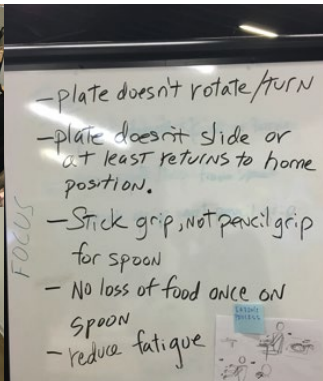 FOCUS
- plate doesn't rotate/turn
- plate doesn't slide or
at least returns to home
position.
- Stick grip, not pencil grip
for spoon
- No loss of food once on
spoon
- reduce fatigue